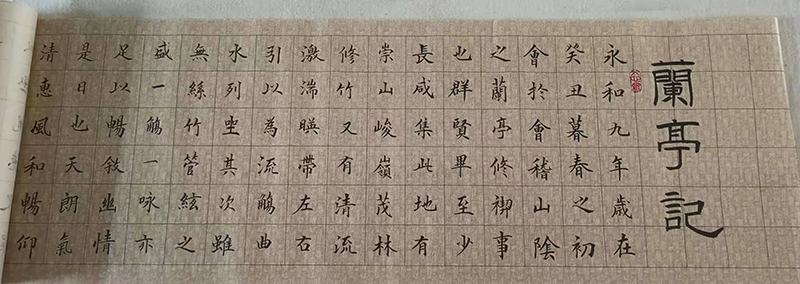 蘭亭記
永和九年歲在
癸丑暮春之初
會於會稽山陰
之蘭亭修禊事
也群賢畢至少
長咸集此地有
崇山峻嶺茂林
修竹又有清流
激湍暎帶左右
引以為流觴曲
水列坐其次雖
無絲竹管絃之
盛一觴一咏亦
足以暢敘幽情
是日也天朗氣
清惠風和暢仰